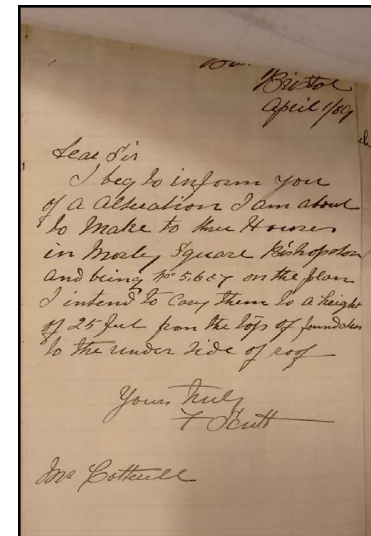 Bristol
April 1/89
Dear Sir
I beg to inform you
of a alteration I am about
to make to three Houses
in Morley Square Bishopston
and being No 5.6 & 7 on the plan
I intend to Carry them to a height
of 25 feet from the top of foundation
to the under side of roof
Yours Truly
Mr Cottrell